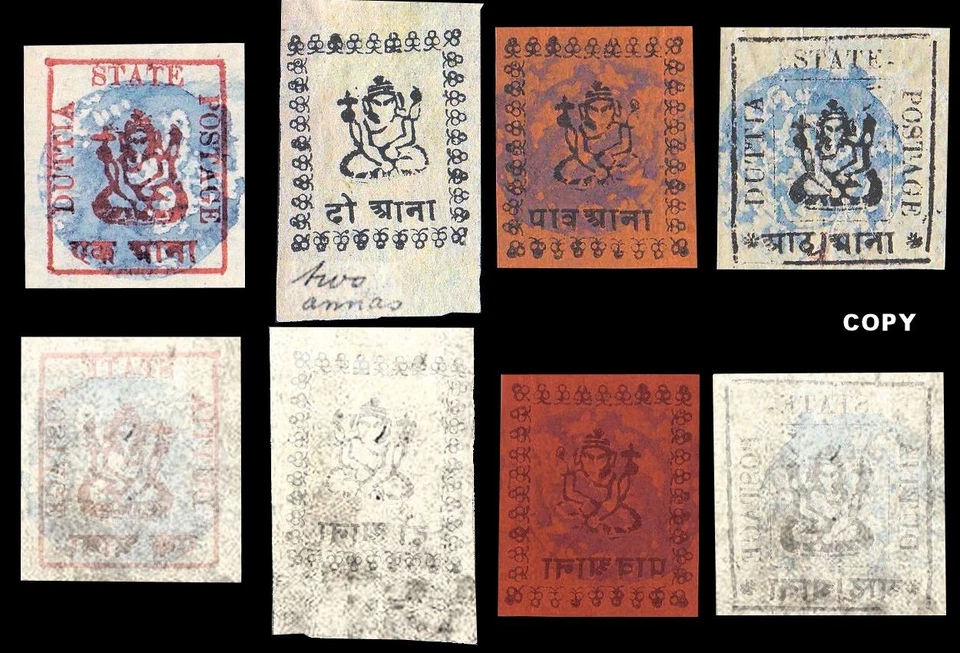 STATE
DUTTIA
POSTAGE
एक आना
दो आना
two
annas
पाव आना
STATE
DUTTIA
POSTAGE
आठ आना
COPY
STATE
पाव आना
STATE